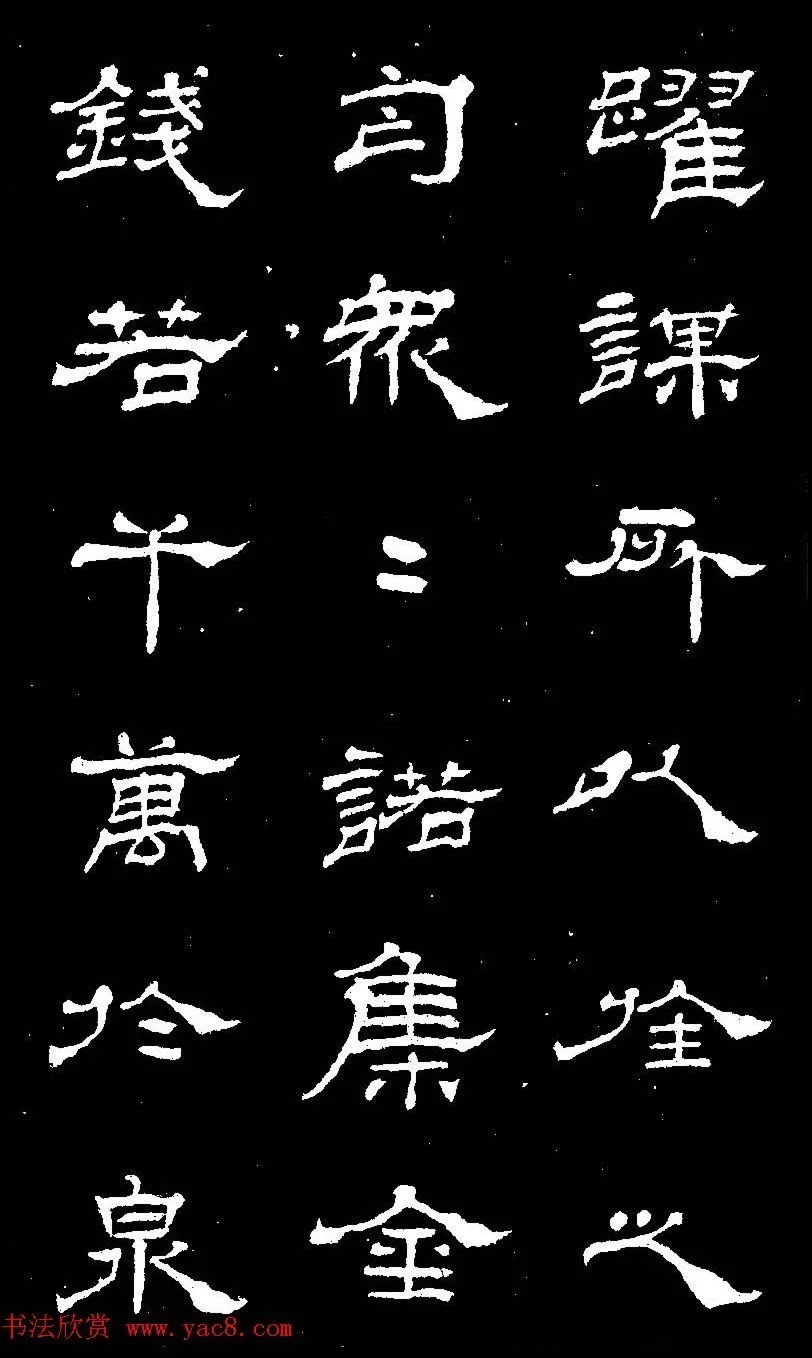 躍謀所以旌之
眾〻諾集金
錢若干萬於泉
书法欣赏 www.yac8.com